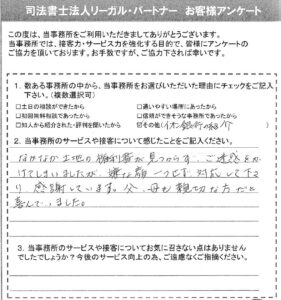 司法書士法人リーガル・パートナー お客様アンケート
この度は、当事務所をご利用いただきましてありがとうございます。
当事務所では、接客力・サービス力を強化する目的で、皆様にアンケートの
ご協力を頂いております。お手数ですが、ご協力下されば幸いです。
1. 数ある事務所の中から、当事務所をお選びいただいた理由にチェックをご記入
下さい。(複数選択可)
□土日の相談ができたから □通いやすい場所にあったから
□初回無料相談であったから □信頼ができそうな事務所であったから
□知人から紹介された・評判を聞いたから ☑その他(イオン銀行の紹介)
2. 当事務所のサービスや接客について感じたことをご記入ください。
なかなか土地の権利書が見つからず、ご迷惑をか
けてしまいましたが、嫌な顔一つせず、対応して下さ
り、感謝しています。父、母も親切な方だと
喜んでいました。
3. 当事務所のサービスや接客についてお気に召さない点はありません
でしたでしょうか？今後のサービス向上の為、ご遠慮なくご指摘ください。